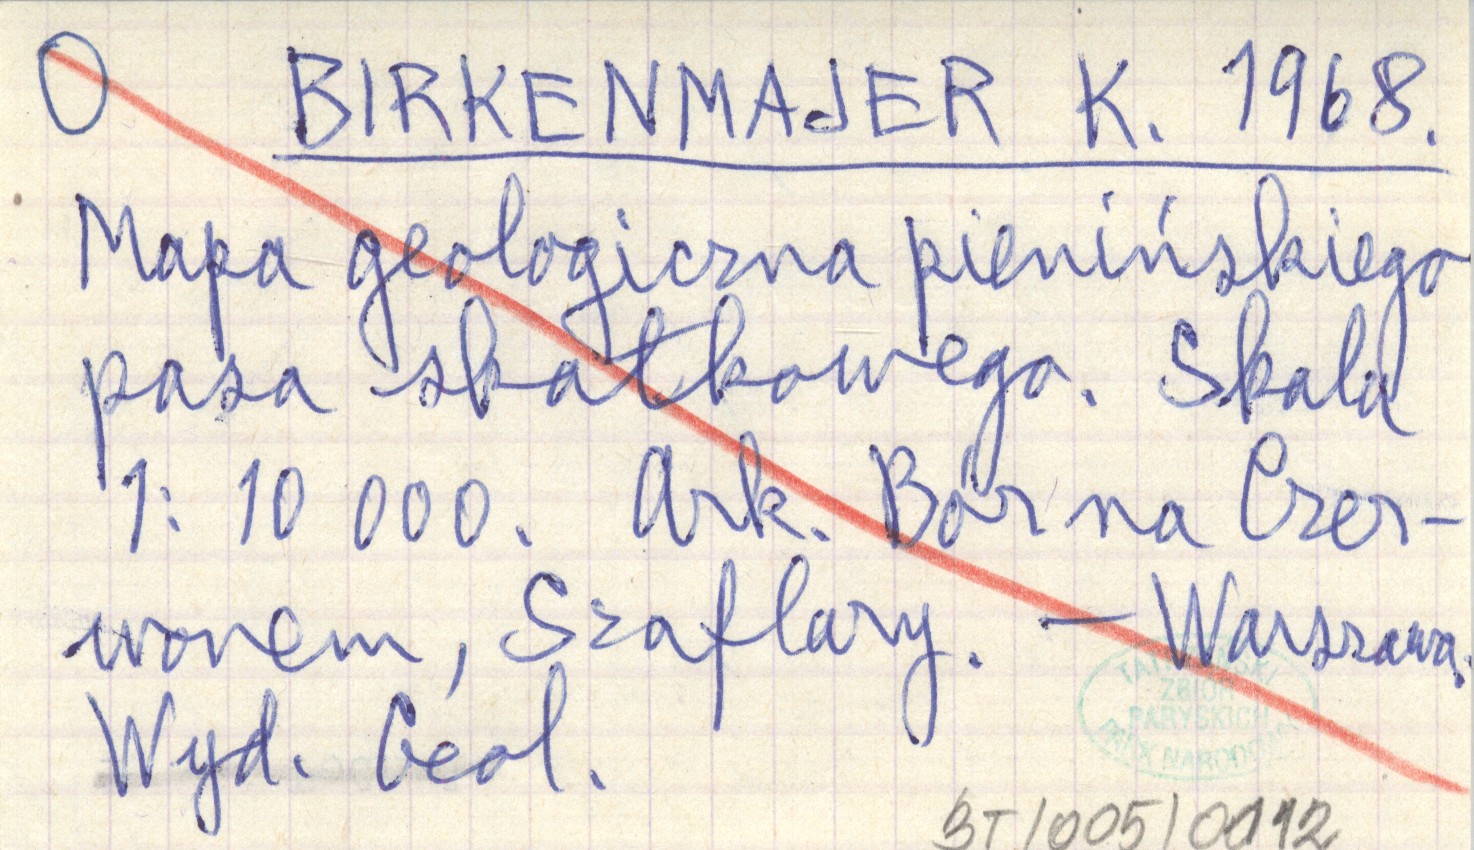 O BIRKENMAJER K. 1968.
Mapa geologiczna pienińskiego
pasa skałkowego. Skala
1: 10 000. Ark. Bór na Czer-
wonem, Szaflary. — Warszawa.
Wyd. Geol.
TATRZAŃSKI
ZBIÓR
PARYSKICH
PARK NARODOWY
BT/005/0012